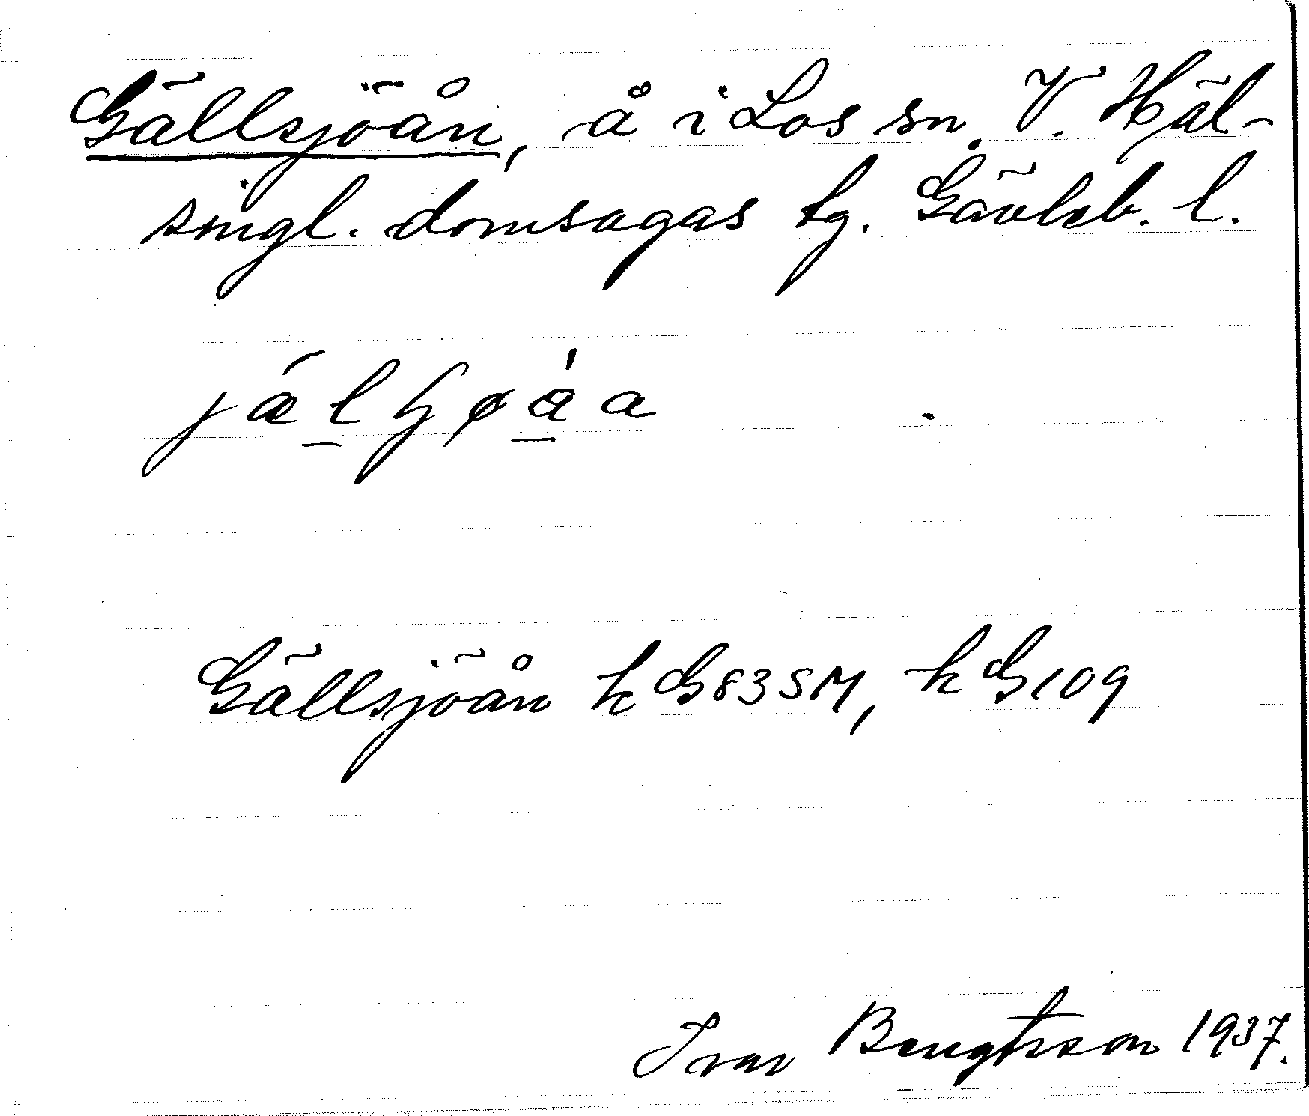 Gällsjöån, å i Los sn. V. Häl-
singl. domsagas tg. Gävleb. l.
jǽl̲ʃøǻ̲a
Gällsjöån k G83SM, k G109
Ivar Bengtsson 1937.